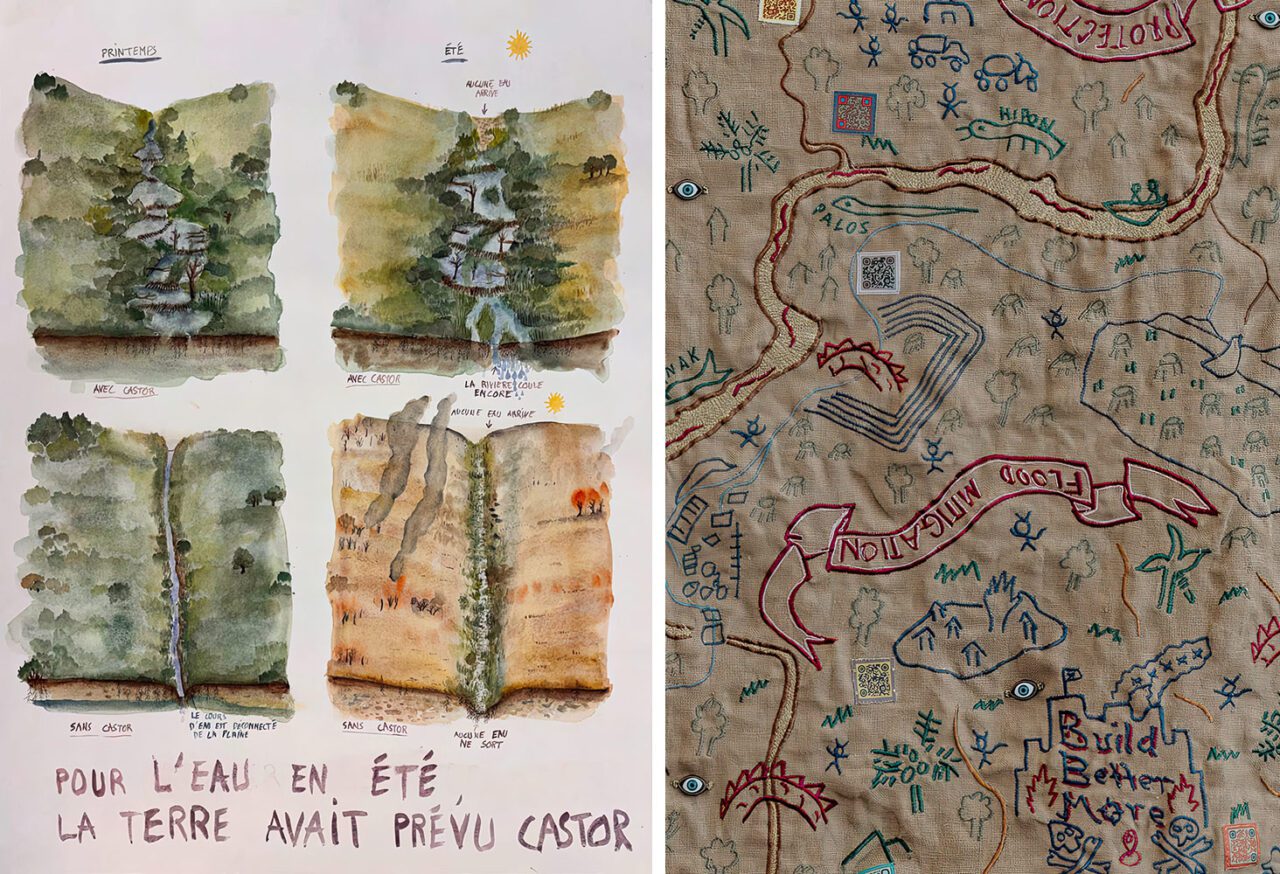 PRINTEMPS
ÉTÉ
AUCUNE EAU
ARRIVE
AVEC CASTOR
AVEC CASTOR
LA RIVIÈRE COULE
ENCORE
AUCUNE EAU ARRIVE
SANS CASTOR
LE COURS
D'EAU EST DECONNECTÉ
DE LA PLAINE
SANS CASTOR
AUCUNE EAU
NE SORT
POUR L'EAU EN ÉTÉ,
LA TERRE AVAIT PRÉVU CASTOR
PROTECTION
HIPON
PALOS
FLOOD MITIGATION
Build
Better
More